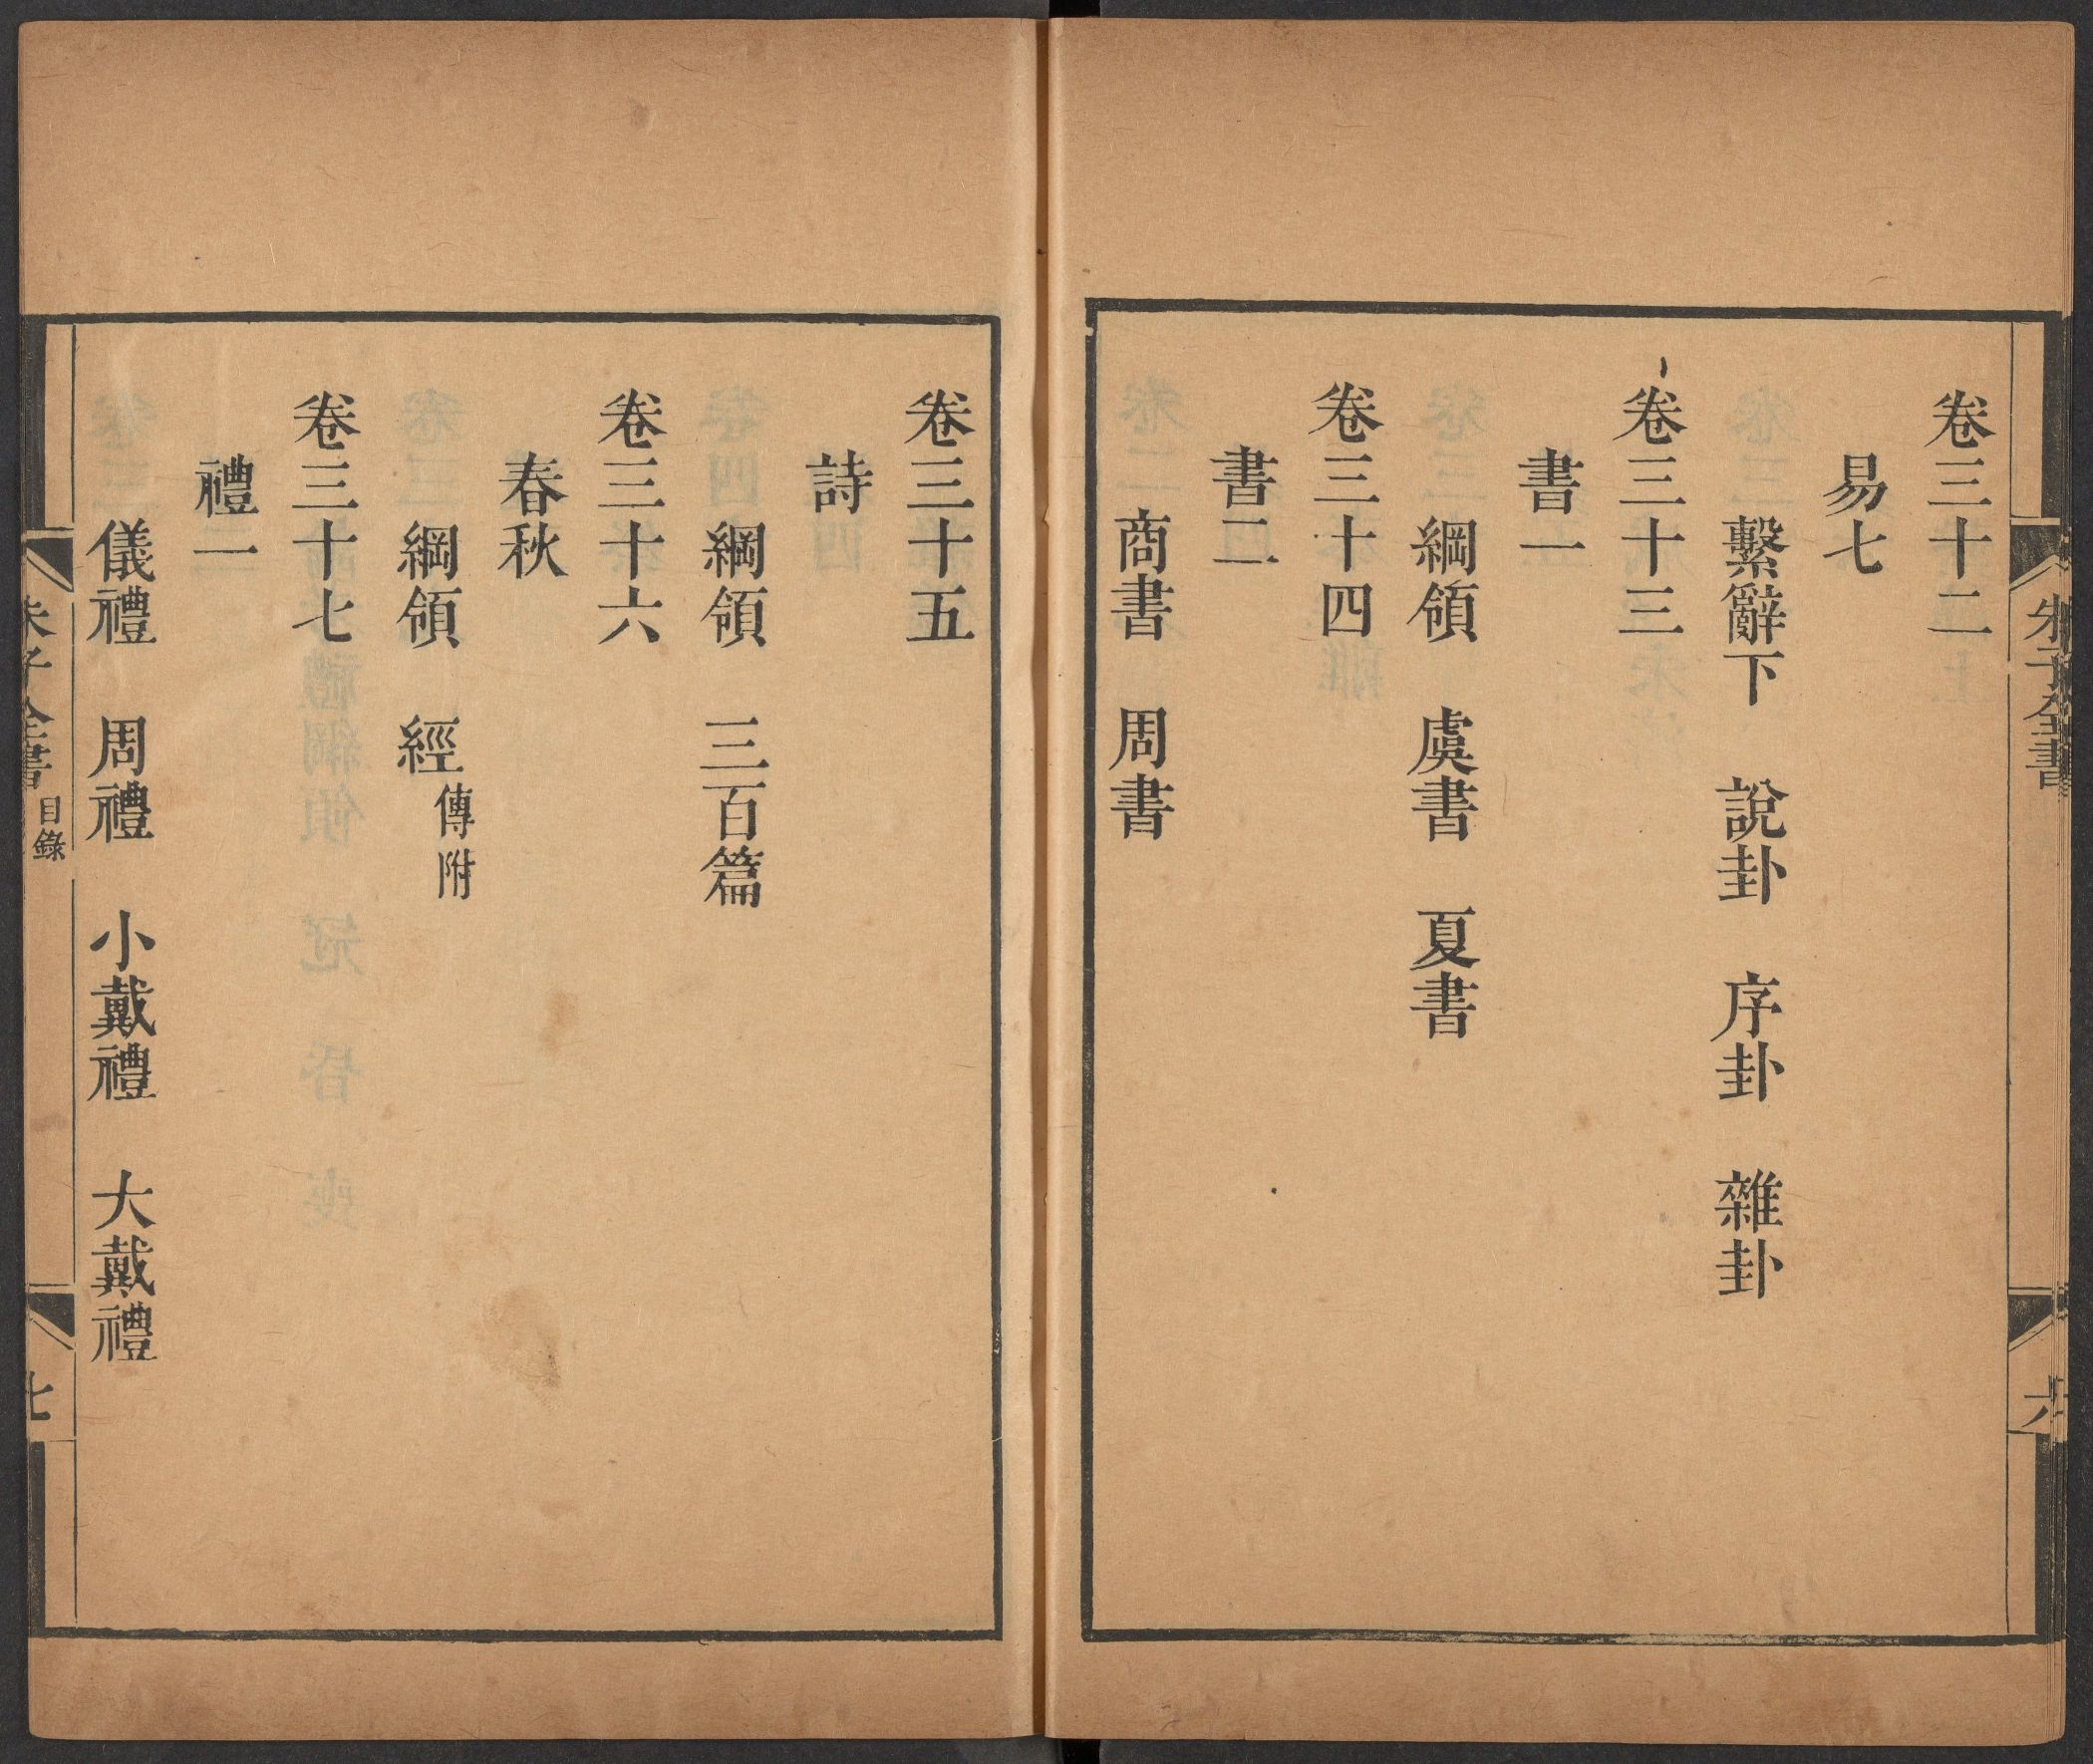 卷三十二
易七
繫辭下　說卦　序卦　雜卦
卷三十三
書一
綱領　虞書　夏書
卷三十四
書二
商書　周書
朱子全書
六
卷三十五
詩
綱領　三百篇
卷三十六
春秋
綱領　經傳附
卷三十七
禮一
儀禮　周禮　小戴禮　大戴禮
朱子全書 目錄
七